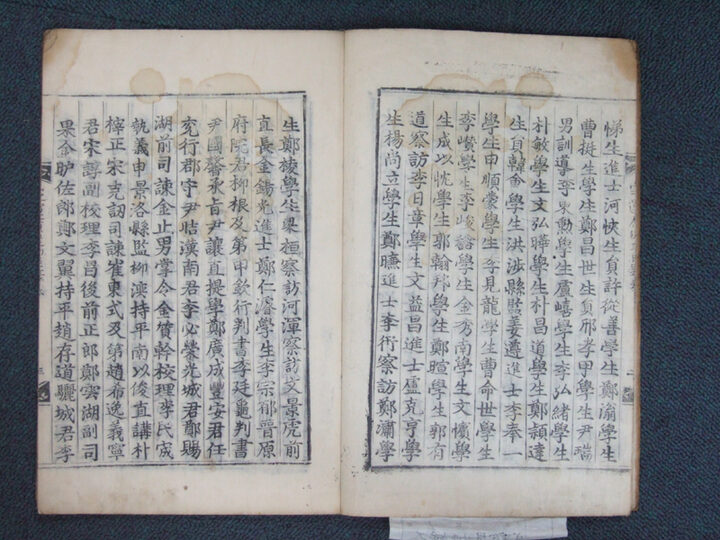 悌生進士河快生員許從善學生鄭滃學生
曹挺生學生鄭昌世生員邢孝甲學生尹瑞
男訓導李杲勳學生盧㟢學生李弘緖學生
朴敏學生文弘驊學生朴昌道學生鄭穎達
生員韓會學生洪涉縣監姜遵進士李奉一
學生申順蒙學生李見龍學生曹命世學生
李㠖學生李峻學生金秀南學生文懷學
生成以忱學生郭翰邦學生鄭暄學生郭有
道察訪李日章學生文益昌進士盧克亨學
生楊尚立學生鄭曛進士李衎察訪鄭瀟學
生鄭棱學生梁桓察訪河渾察訪文景虎前
直長金錫光進士鄭仁濬學生李宗郁晉原
府院君柳根及第申欽行判書李廷龜判書
尹國馨承旨尹讓直提學鄭廣成豐安君任
兖行郡守尹㤼漢南君李必榮光城君鄭賜
湖前司諫金止男掌令金質幹校理李民宬
執義申景洛縣監柳澳持平南以俊直講朴
梓正宋克訒司諫崔東式及第趙希逸義寧
君宋諄副校理李昌後前正郎鄭雲湖副司
果令昈佐郎鄭文翼持平趙存道驪城君李